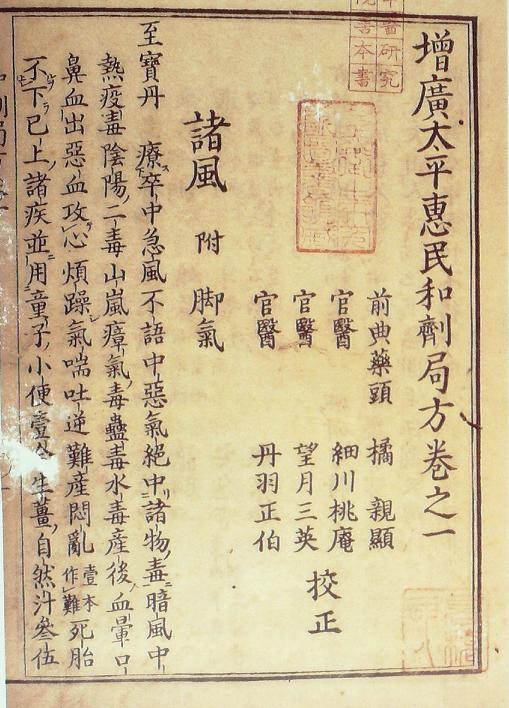 增廣太平惠民和劑局方卷之一
前典藥頭 橘 親顯
官醫 細川桃庵
官醫 望月三英
官醫 丹羽正伯
校正
諸風 附 脚氣
至寶丹 療卒中急風不語中惡氣絕中諸物毒暗風中
熱疫毒陰陽二毒山嵐瘴氣毒蠱毒水毒產後血暈口
鼻血出惡血攻心煩躁氣喘吐逆難產悶亂壹本作難死胎
不下已上諸疾並用童子小便壹合生薑自然汁叄伍
醫研究
院善本書